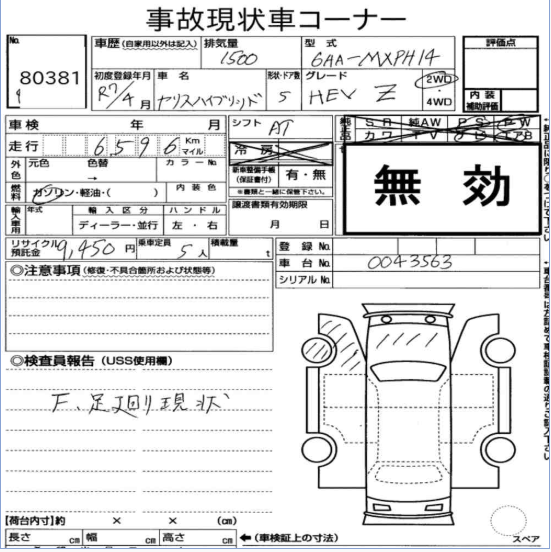 事故現状車コーナー
No. 80381
車歴 (自家用以外は記入) 排気量 1500 型式 6AA-MXPH14 評価点
初度登録年月 R7/4月 車名 ヤリスハイブリッド 形状・ドア数 5 グレード HEV Z 2WD・4WD 内装補助評価
車検 年 月 シフト AT 純正品 SR 純AW PS PW
カワ TV
走行 6596 Km マイル 冷房
外色 元色 色替 → カラーNo. 新車整備手帳(保証書付) 有・無
※書類と一緒に保管下さい。
無効
燃料 ガソリン・軽油・( ) 内装色
譲渡書類有効期限
月 日
輸入車用 年式 輸入区分 ハンドル
ディーラー・並行 左・右
リサイクル預託金 9,450円 乗車定員 5人 積載量 t
登録No.
車台No. 0043563
シリアルNo.
◎注意事項 (修復・不具合箇所および状態等)
◎検査員報告 (USS使用欄)
F、足廻り現状
【荷台内寸】約 × × (cm)
長さ cm 幅 cm 高さ cm ←(車検証上の寸法)
スペア